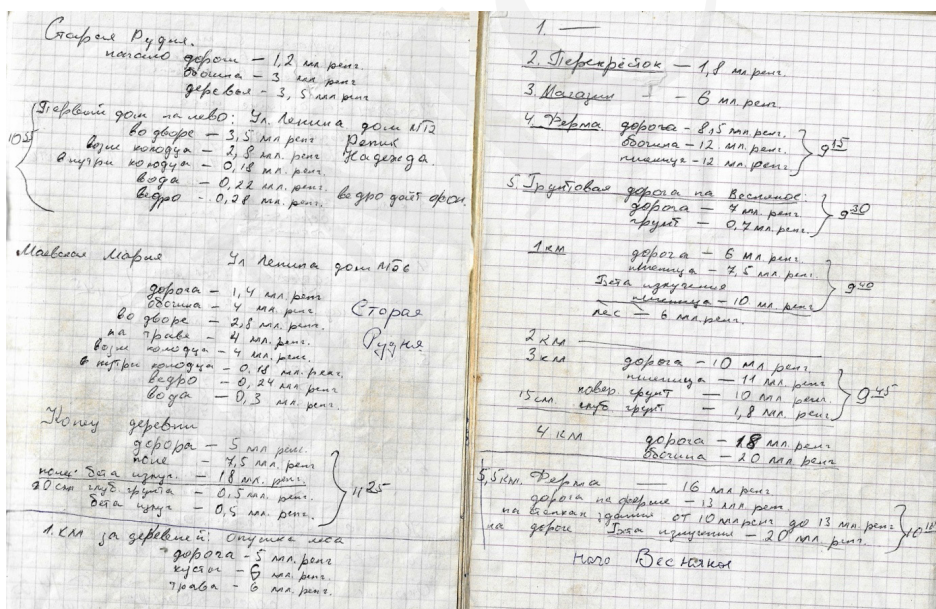 Старая Рудня.
начало дороги – 1,2 мл. ренг.
обочина – 3 мл ренг
деревья – 3,5 мл ренг
Первый дом налево: Ул. Ленина дом №12
во дворе – 3,5 мл. ренг
возле колодца – 2,8 мл. ренг Надежда
внутри колодца – 0,18 мл. ренг
вода – 0,22 мл. ренг
ведро – 0,28 мл. ренг. ведро даёт фон.
10 55
Маевская Мария Ул Ленина дом №66
дорога – 1,4 мл. ренг
обочина – 4 мл. ренг
во дворе – 2,8 мл. ренг.
на траве – 4 мл. ренг.
возле колодца – 4 мл. ренг.
внутри колодца – 0,18 мл. ренг.
ведро – 0,24 мл ренг
вода – 0,3 мл. ренг.
Старая
Рудня
Конец деревни
дорога – 5 мл ренг.
поле – 7,5 мл. ренг
бета излуч. – 18 мл. ренг.
20 см глуб грунта – 0,5 мл. ренг.
бета излуч – 0,5 мл. ренг.
11 25
1. км за деревней: опушка леса
дорога – 5 мл. ренг
кусты – 6 мл. ренг.
трава – 6 мл. ренг.
1. —
2. Перекрёсток – 1,8 мл. ренг.
3. Магазин – 6 мл. ренг.
4. Ферма. дорога – 8,5 мл. ренг.
обочина – 12 мл. ренг.
пшеница – 12 мл. ренг.
9 15
5. Грунтовая дорога на Весняное:
дорога – 7 мл. ренг
грунт – 0,7 мл. ренг.
9 30
1 км дорога – 6 мл. ренг.
пшеница – 7,5 мл. ренг.
Бета излучения
пшеница – 10 мл. ренг
лес – 6 мл. ренг.
9 40
2 км
3 км дорога – 10 мл ренг.
пшеница – 11 мл. ренг
повер. грунт – 10 мл. ренг.
15 см. глуб грунт – 1,8 мл. ренг
9 45
4 км дорога – 18 мл. ренг
обочина – 20 мл. ренг
5,5 км. Ферма – 16 мл. ренг
дорога на ферме – 13 мл. рен.
на стенках здания от 10 мл ренг до 13 мл. ренг
на дороги Бета излучения – 20 мл. ренг.